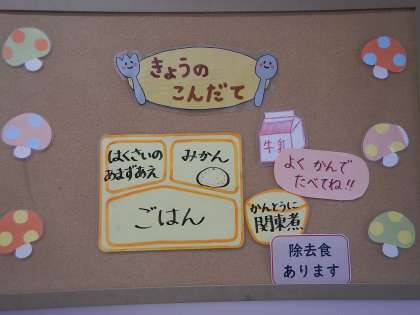 きょうの
こんだて
はくさいの
あまずあえ
みかん
ごはん
牛乳
よく かんで
たべてね!!
かんとうに
関東煮
除去食
あります